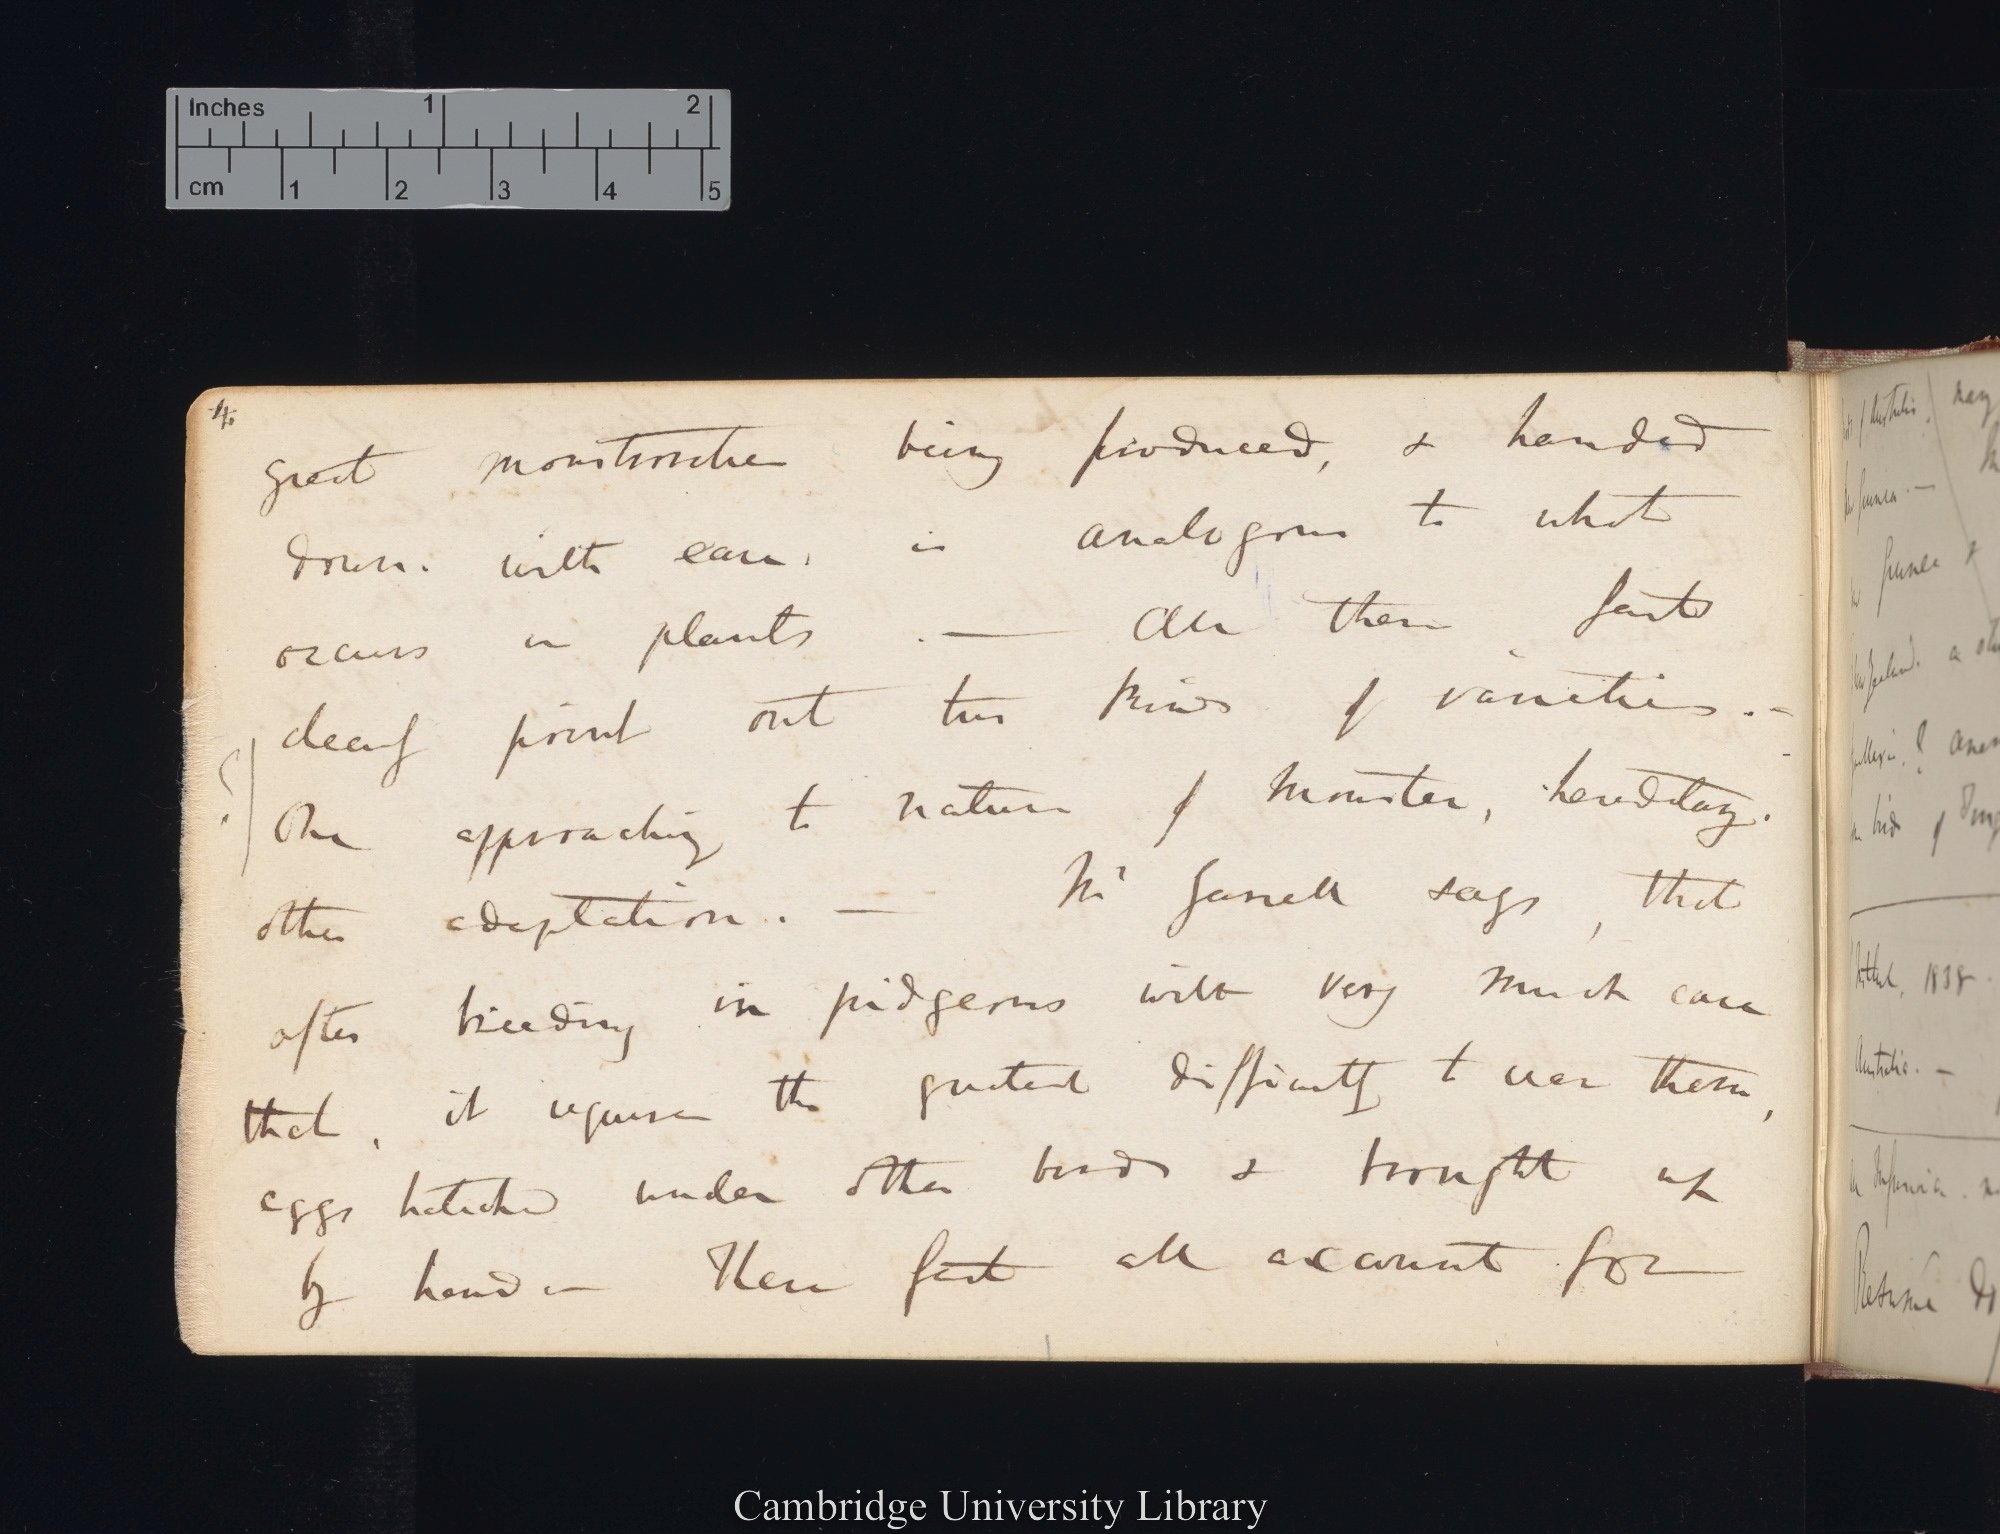 Inches 1 2
cm 1 2 3 4 5
4
great monstrosities being produced, & handed
down. with ease, is analogous to what
occurs in plants . — All these facts
clearly point out two kinds of varieties. —
? One approaching to nature of monster, hereditary.
other adaptation. — Mr Yarrell says, that
after breeding in pidgeons with very much care
that, it requires the greatest difficulty to rear them,
eggs hatched under other birds & brought up
by hand — These fact all account for
of Australia. may
Guinea. —
Guinea &
New Zealand.
of
1838
Australia. —
Cambridge University Library